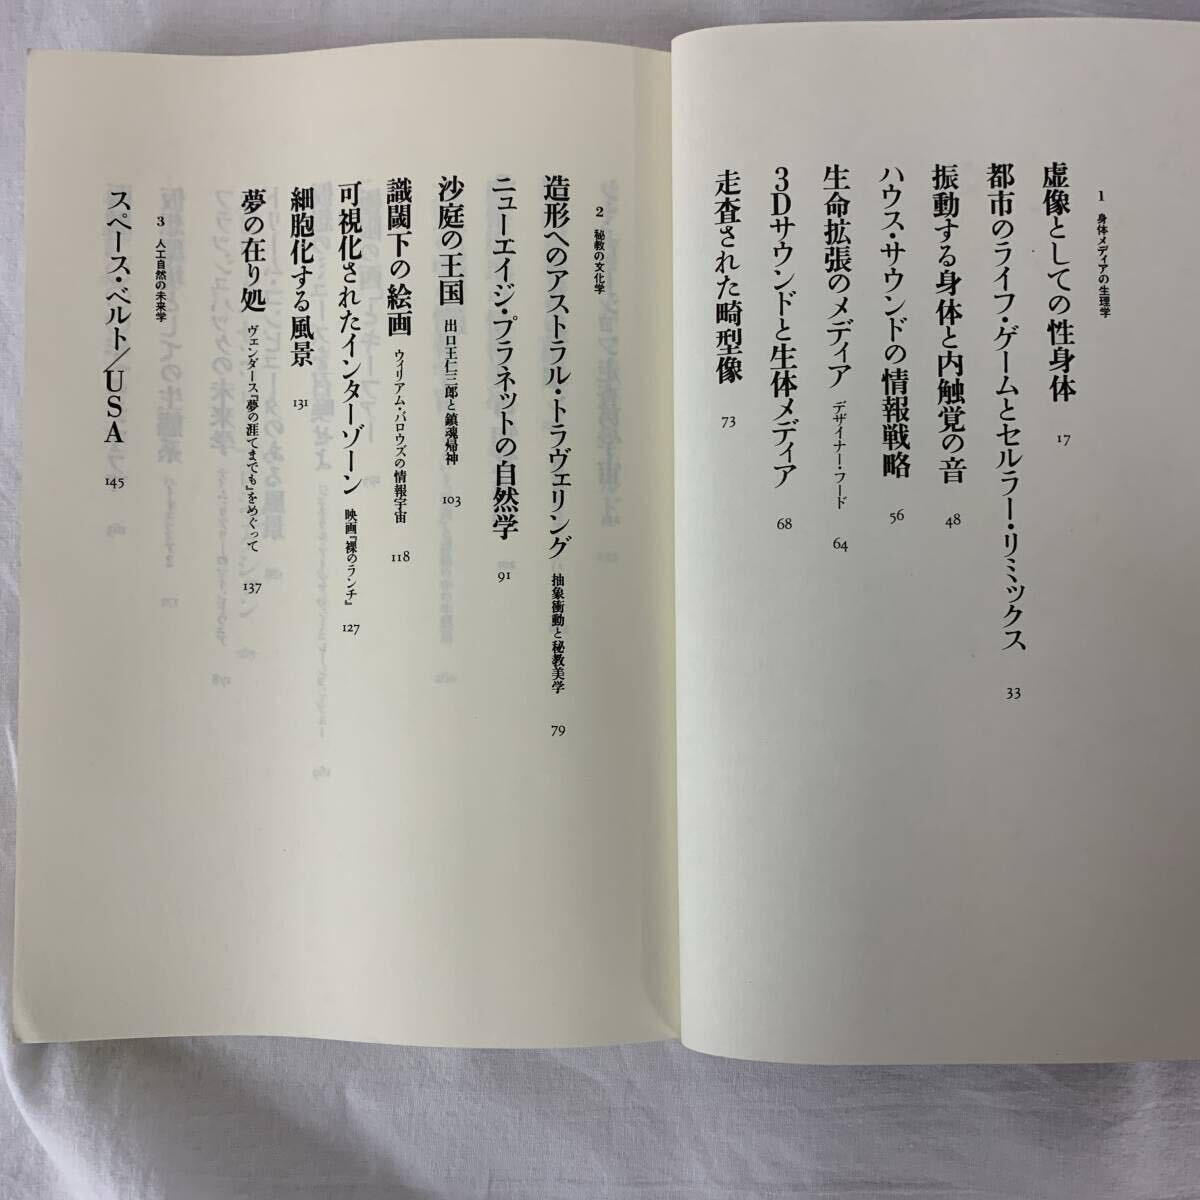 1 身体メディアの生理学
虚像としての性身体 17
都市のライフ・ゲームとセルラー・リミックス 33
振動する身体と内触覚の音 48
ハウス・サウンドの情報戦略 56
生命拡張のメディア デザイナー・フード 64
3Dサウンドと生体メディア 68
走査された畸型像 73
2 秘教の文化学
造形へのアストラル・トラヴェリング 抽象衝動と秘教美学 79
ニューエイジ・プラネットの自然学 91
沙庭の王国 出口王仁三郎と鎮魂帰神 103
識閾下の絵画 ウィリアム・バロウズの情報宇宙 118
可視化されたインターゾーン 映画『裸のランチ』 127
細胞化する風景 131
夢の在り処 ヴェンダース『夢の涯てまでも』をめぐって 137
3 人工自然の未来学
スペース・ベルト/USA 145